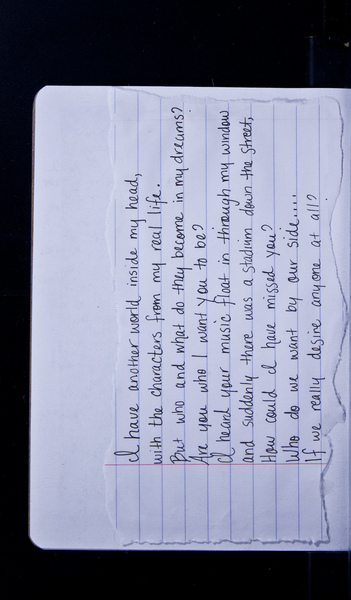 I have another world inside my head,
with the characters from my real life.
But who and what do they become in my dreams?
Are you who I want you to be?
I heard your music float in through my window
and suddenly there was a stadium down the street,
How could I have missed you?
Who do we want by our side....
If we really desire anyone at all?